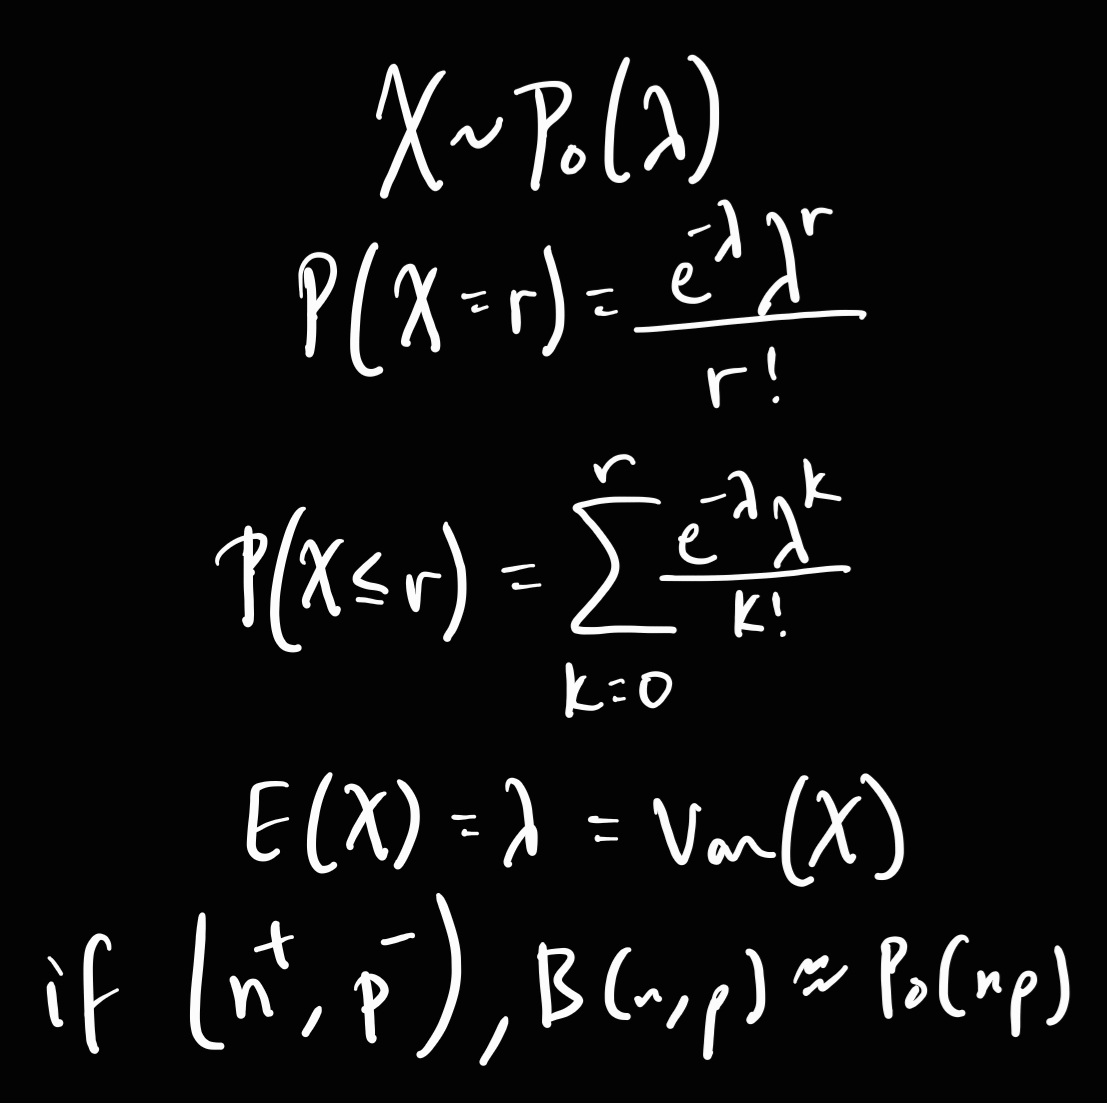 X ~ Po(λ)
P(X = r) = e^{-λ} λ^r / r!
P(X ≤ r) = ∑_{k=0}^{r} e^{-λ} λ^k / k!
E(X) = λ = Var(X)
if (n⁺, p⁻), B(n, p) ≈ Po(np)